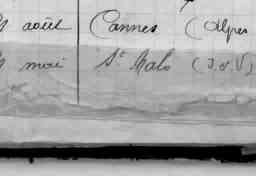 août Cannes (Alpes
mai St Malo (I. et V)